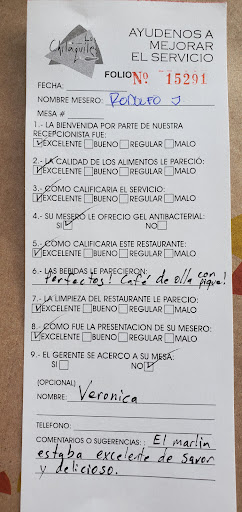 Chilaquiles
AYUDENOS A
MEJORAR
EL SERVICIO
FOLIO Nº 15291
FECHA:
NOMBRE MESERO: Rodolfo J
MESA #
1.- LA BIENVENIDA POR PARTE DE NUESTRA
RECEPCIONISTA FUE:
EXCELENTE BUENO REGULAR MALO
2.- LA CALIDAD DE LOS ALIMENTOS LE PARECIÓ:
EXCELENTE BUENO REGULAR MALO
3.- COMO CALIFICARIA EL SERVICIO:
EXCELENTE BUENO REGULAR MALO
4.- SU MESERO LE OFRECIO GEL ANTIBACTERIAL:
SI NO
5.- COMO CALIFICARIA ESTE RESTAURANTE:
EXCELENTE BUENO REGULAR MALO
6.- LAS BEBIDAS LE PARECIERON:
Perfectos! Café de olla con pique!
7.- LA LIMPIEZA DEL RESTAURANTE LE PARECIO:
EXCELENTE BUENO REGULAR MALO
8.- COMO FUE LA PRESENTACION DE SU MESERO:
EXCELENTE BUENO REGULAR MALO
9.- EL GERENTE SE ACERCO A SU MESA:
SI NO
(OPCIONAL)
NOMBRE: Veronica
TELEFONO:
COMENTARIOS O SUGERENCIAS: : El marlin
estaba excelente de savor
y delicioso.